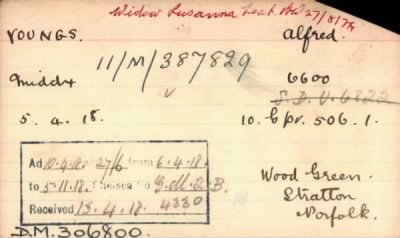 Widow Susanna Leah 27/8/74
YOUNGS. Alfred.
11/M/387829
Middx 6600
S.D.U. 6822
5.4.18. 10. Cpr. 506.1.
Ad 10.4.18 27/6 from 6.4.18
to 5.11.18. Chelsea No. G.M.2.B.
Received 15.4.18. 4330
Wood Green.
Stratton
Norfolk.
D.M. 306800.